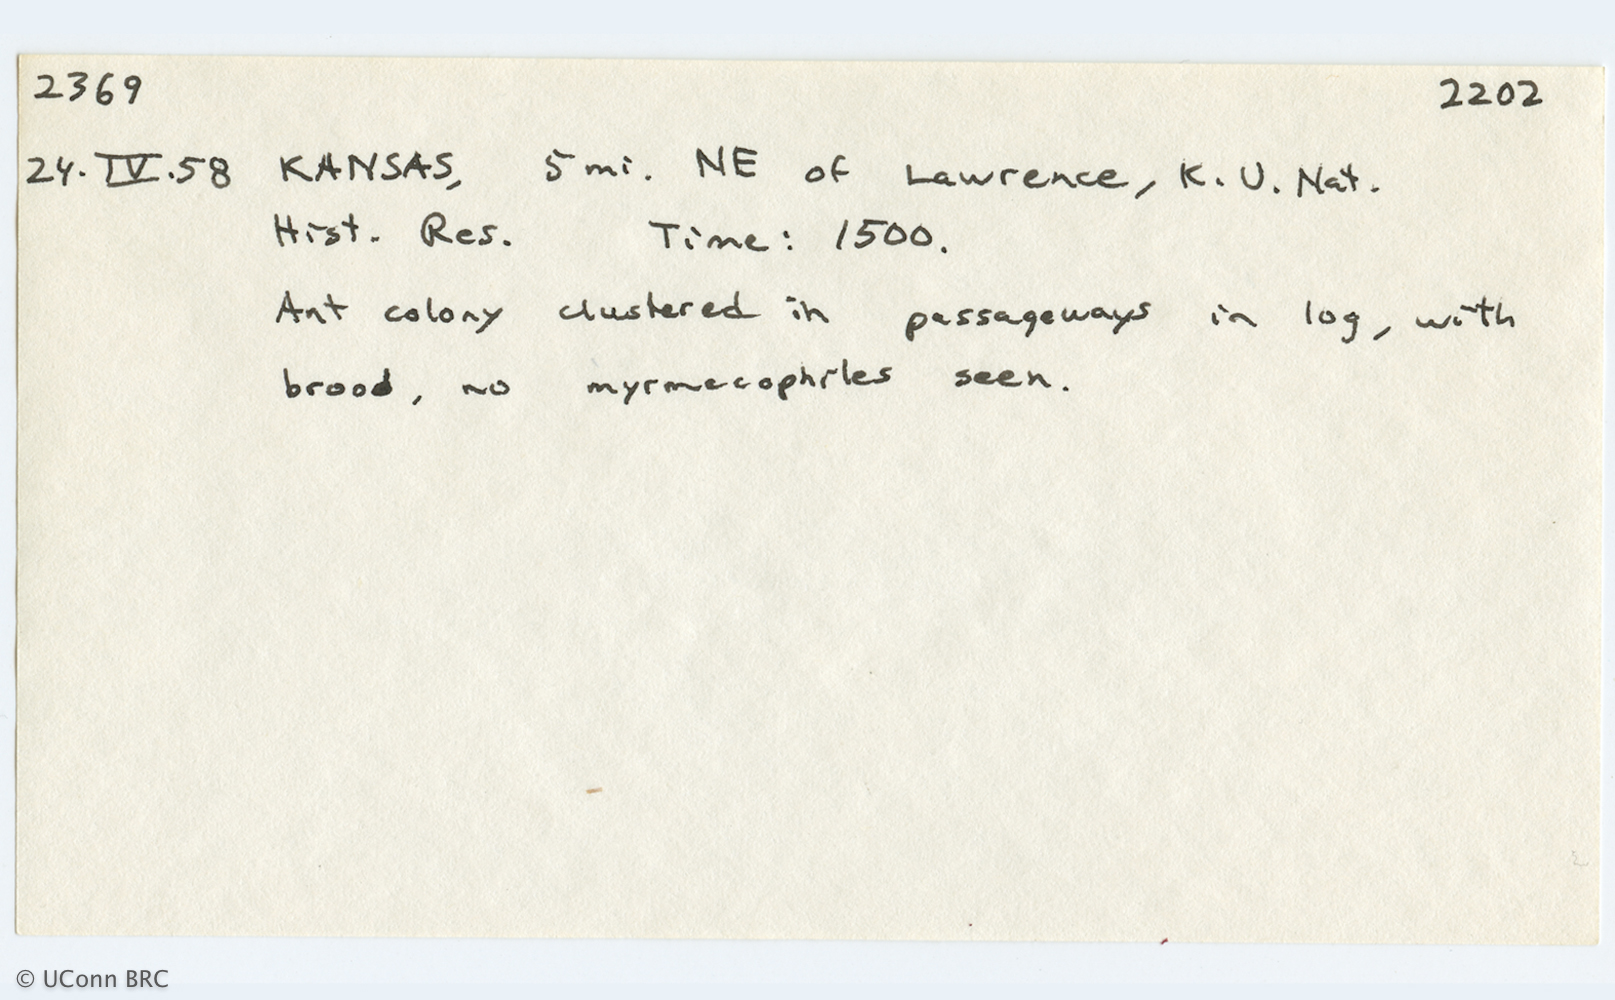 2369 2202
24.IV.58 KANSAS, 5 mi. NE of Lawrence, K.U. Nat.
Hist. Res. Time: 1500.
Ant colony clustered in passageways in log, with
brood, no myrmecophiles seen.
© UConn BRC